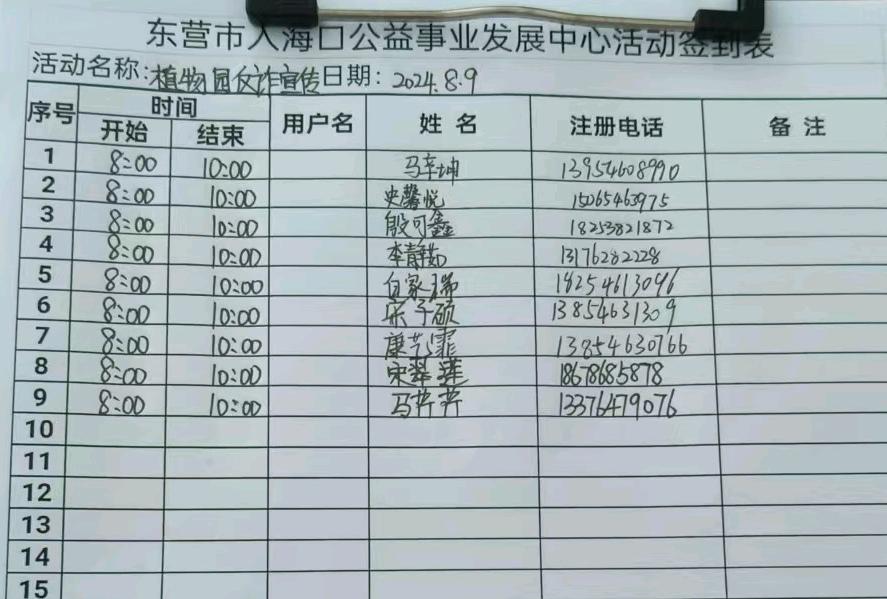 东营市入海口公益事业发展中心活动签到表
活动名称:植物园反诈宣传日期：2024.8.9
序号 时间 用户名 姓名 注册电话 备注
开始 结束
1 8:00 10:00 马辛坤 13954608990
2 8:00 10:00 史馨悦 15065463975
3 8:00 10:00 殷可鑫 18253821872
4 8:00 10:00 李静茹 13176282228
5 8:00 10:00 白家瑞 18254613096
6 8:00 10:00 宋子硕 13854631309
7 8:00 10:00 康艺霏 13854630766
8 8:00 10:00 宋翠莲 18678685878
9 8:00 10:00 马芹芹 13376479076
10
11
12
13
14
15